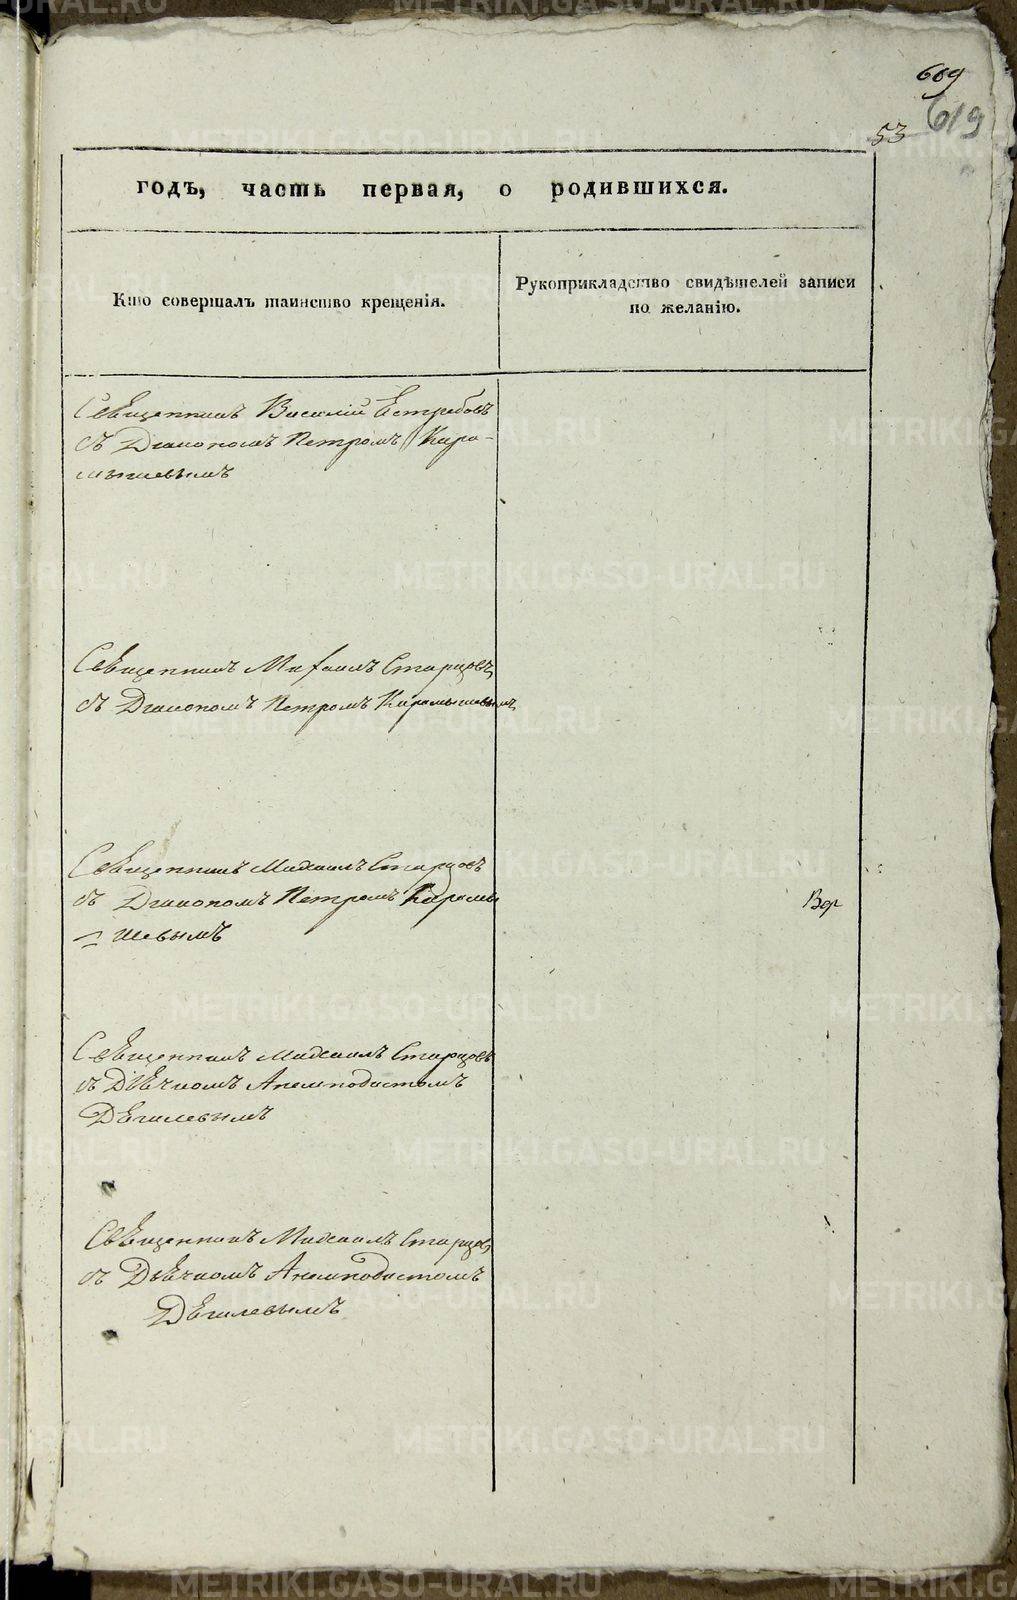 609
619
53
годъ, часть первая, о родившихся.
Кто совершалъ таинство крещенія.
Рукоприкладство свидѣтелей записи
по желанію.
Священникъ Василій Ястребовъ
съ Дьякономъ Петромъ Кара-
мышевымъ
Священникъ Михаилъ Старцовъ
съ Дьякономъ Петромъ Карамышевымъ
Священникъ Михаилъ Старцовъ
съ Дьякономъ Петромъ Карамы
шевымъ
Священникъ Михаилъ Старцовъ
съ Дьячкомъ Анемподистомъ
Дѣгилевымъ
Священникъ Михаилъ Старцов
съ Дьячкомъ Анемподистомъ
Дѣгилевымъ
METRIKI.GASO-URAL.RU